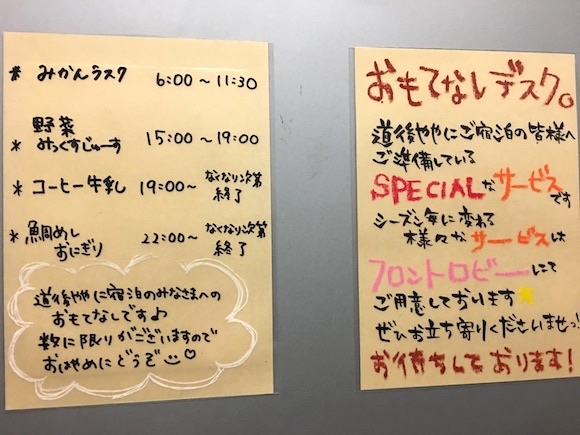 * みかんラスク 6:00～11:30
野菜
* みっくすじゅーす 15:00～19:00
* コーヒー牛乳 19:00～ なくなり次第
終了
* 鯛めし
おにぎり 22:00～ なくなり次第
終了
道後ややに宿泊のみなさまへの
おもてなしです♪
数に限りがございますので
おはやめにどうぞ
おもてなしデスク。
道後ややにご宿泊の皆様へ
ご準備している
SPECIALなサービスです
シーズン毎に変わる
様々なサービスは
フロントロビーにて
ご用意しております
ぜひお立ち寄りくださいませっ!
お待ちしております!